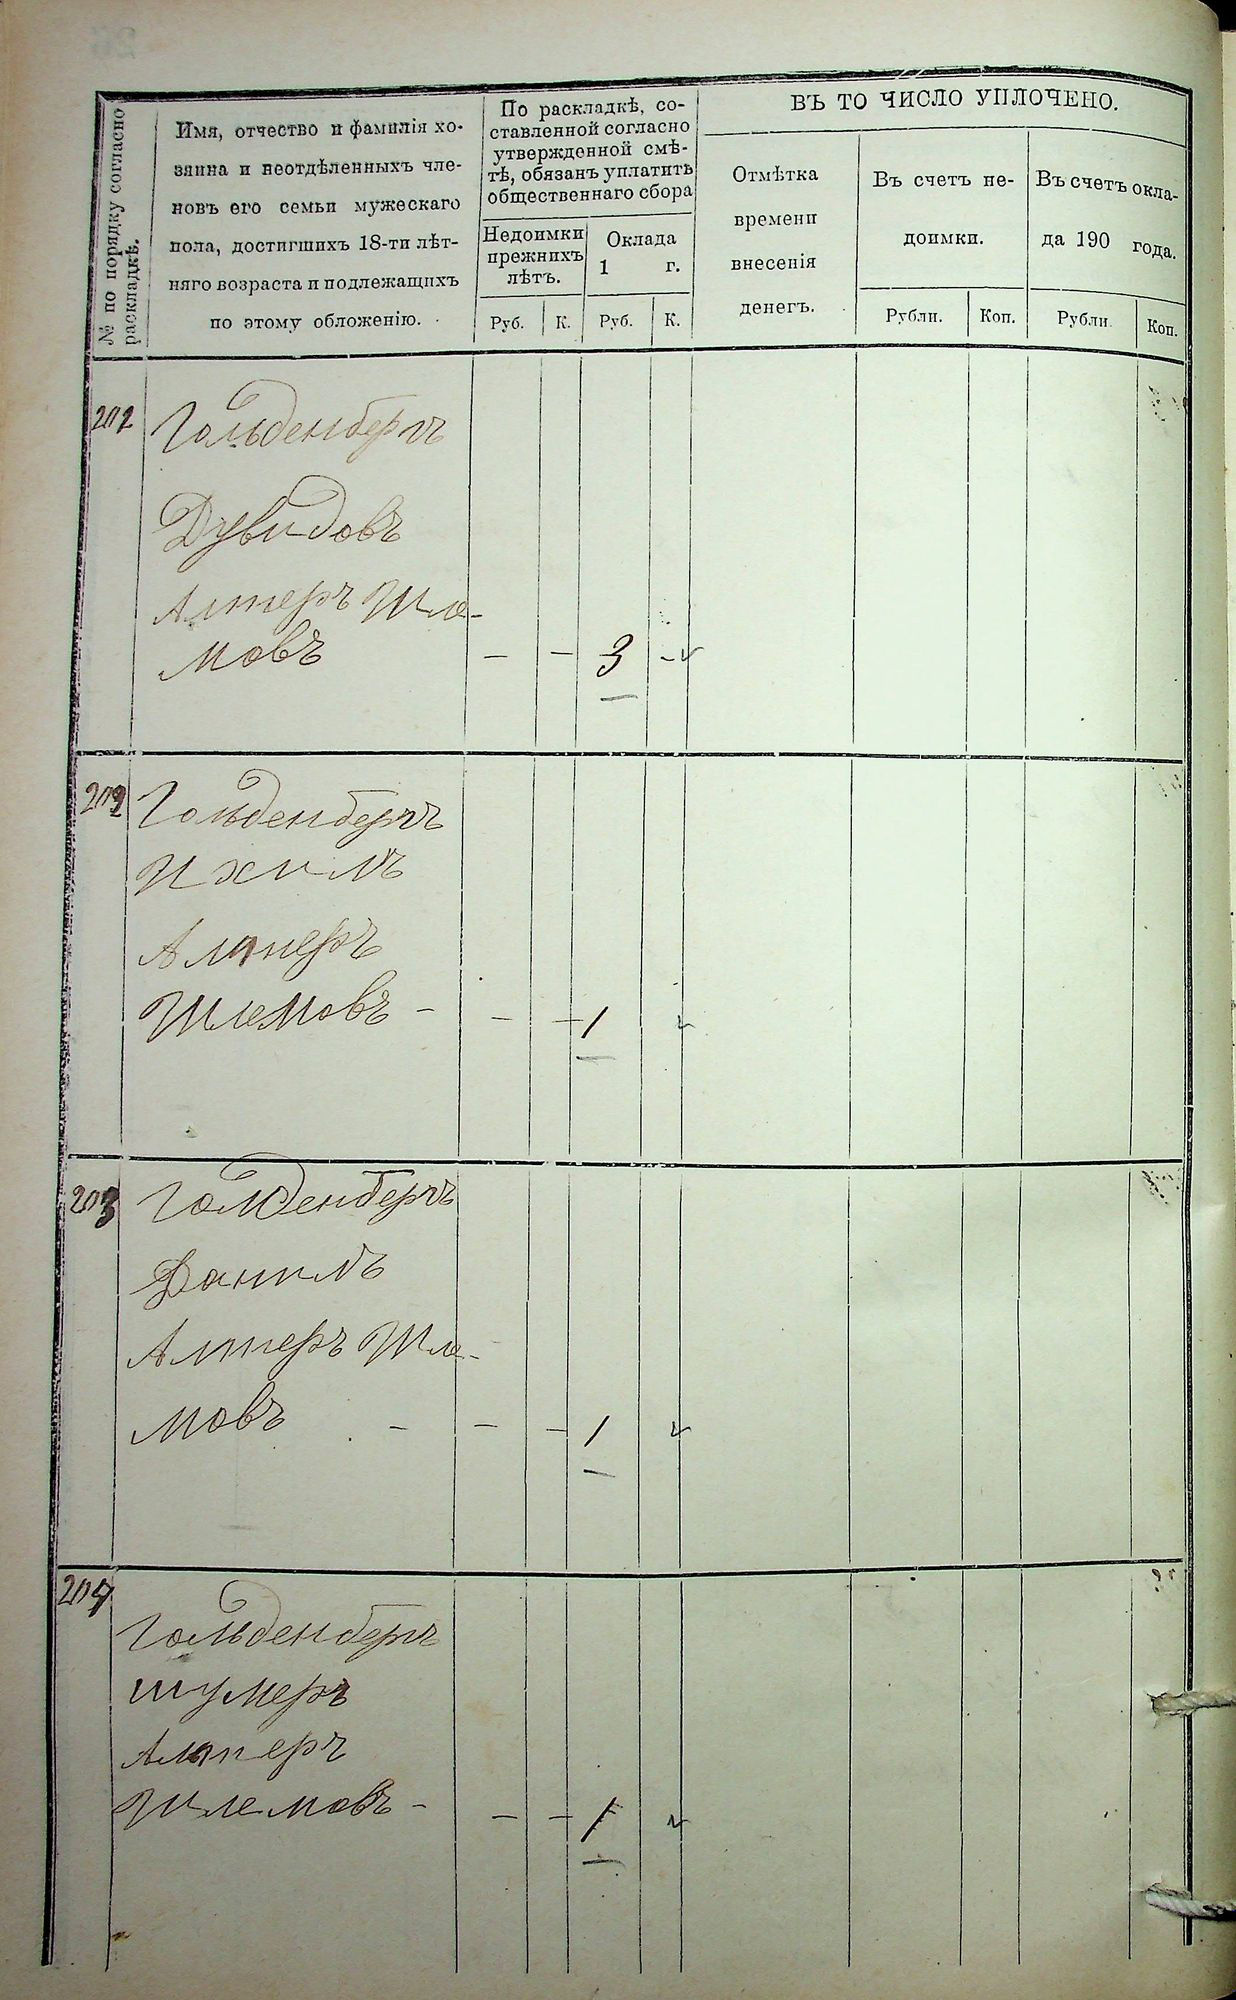 № по порядку согласно
раскладкѣ.
Имя, отчество и фамилія хо-
зяина и неотдѣленныхъ чле-
новъ его семьи мужескаго
пола, достигшихъ 18-ти лѣт-
няго возраста и подлежащихъ
по этому обложенію.
По раскладкѣ, со-
ставленной согласно
утвержденной смѣ-
тѣ, обязанъ уплатить
общественнаго сбора
Недоимки
прежнихъ
лѣтъ.
Оклада
1 г.
Руб. К. Руб. К.
ВЪ ТО ЧИСЛО УПЛОЧЕНО.
Отмѣтка
времени
внесенія
денегъ.
Въ счетъ не-
доимки.
Въ счетъ окла-
да 190 года.
Рубли. Коп. Рубли. Коп.
Гольденбергъ
Дувидовъ
Алтеръ Шле-
мовъ — — 3 -
202 Гольденбергъ
Ихилъ
Алтеръ
Шлемовъ - — — 1
203 Голденбергъ
Данилъ
Алтеръ Шле-
мовъ — — — 1
204
Гольденбергъ
Шумеръ
Алтеръ
Шлемовъ - — — 1